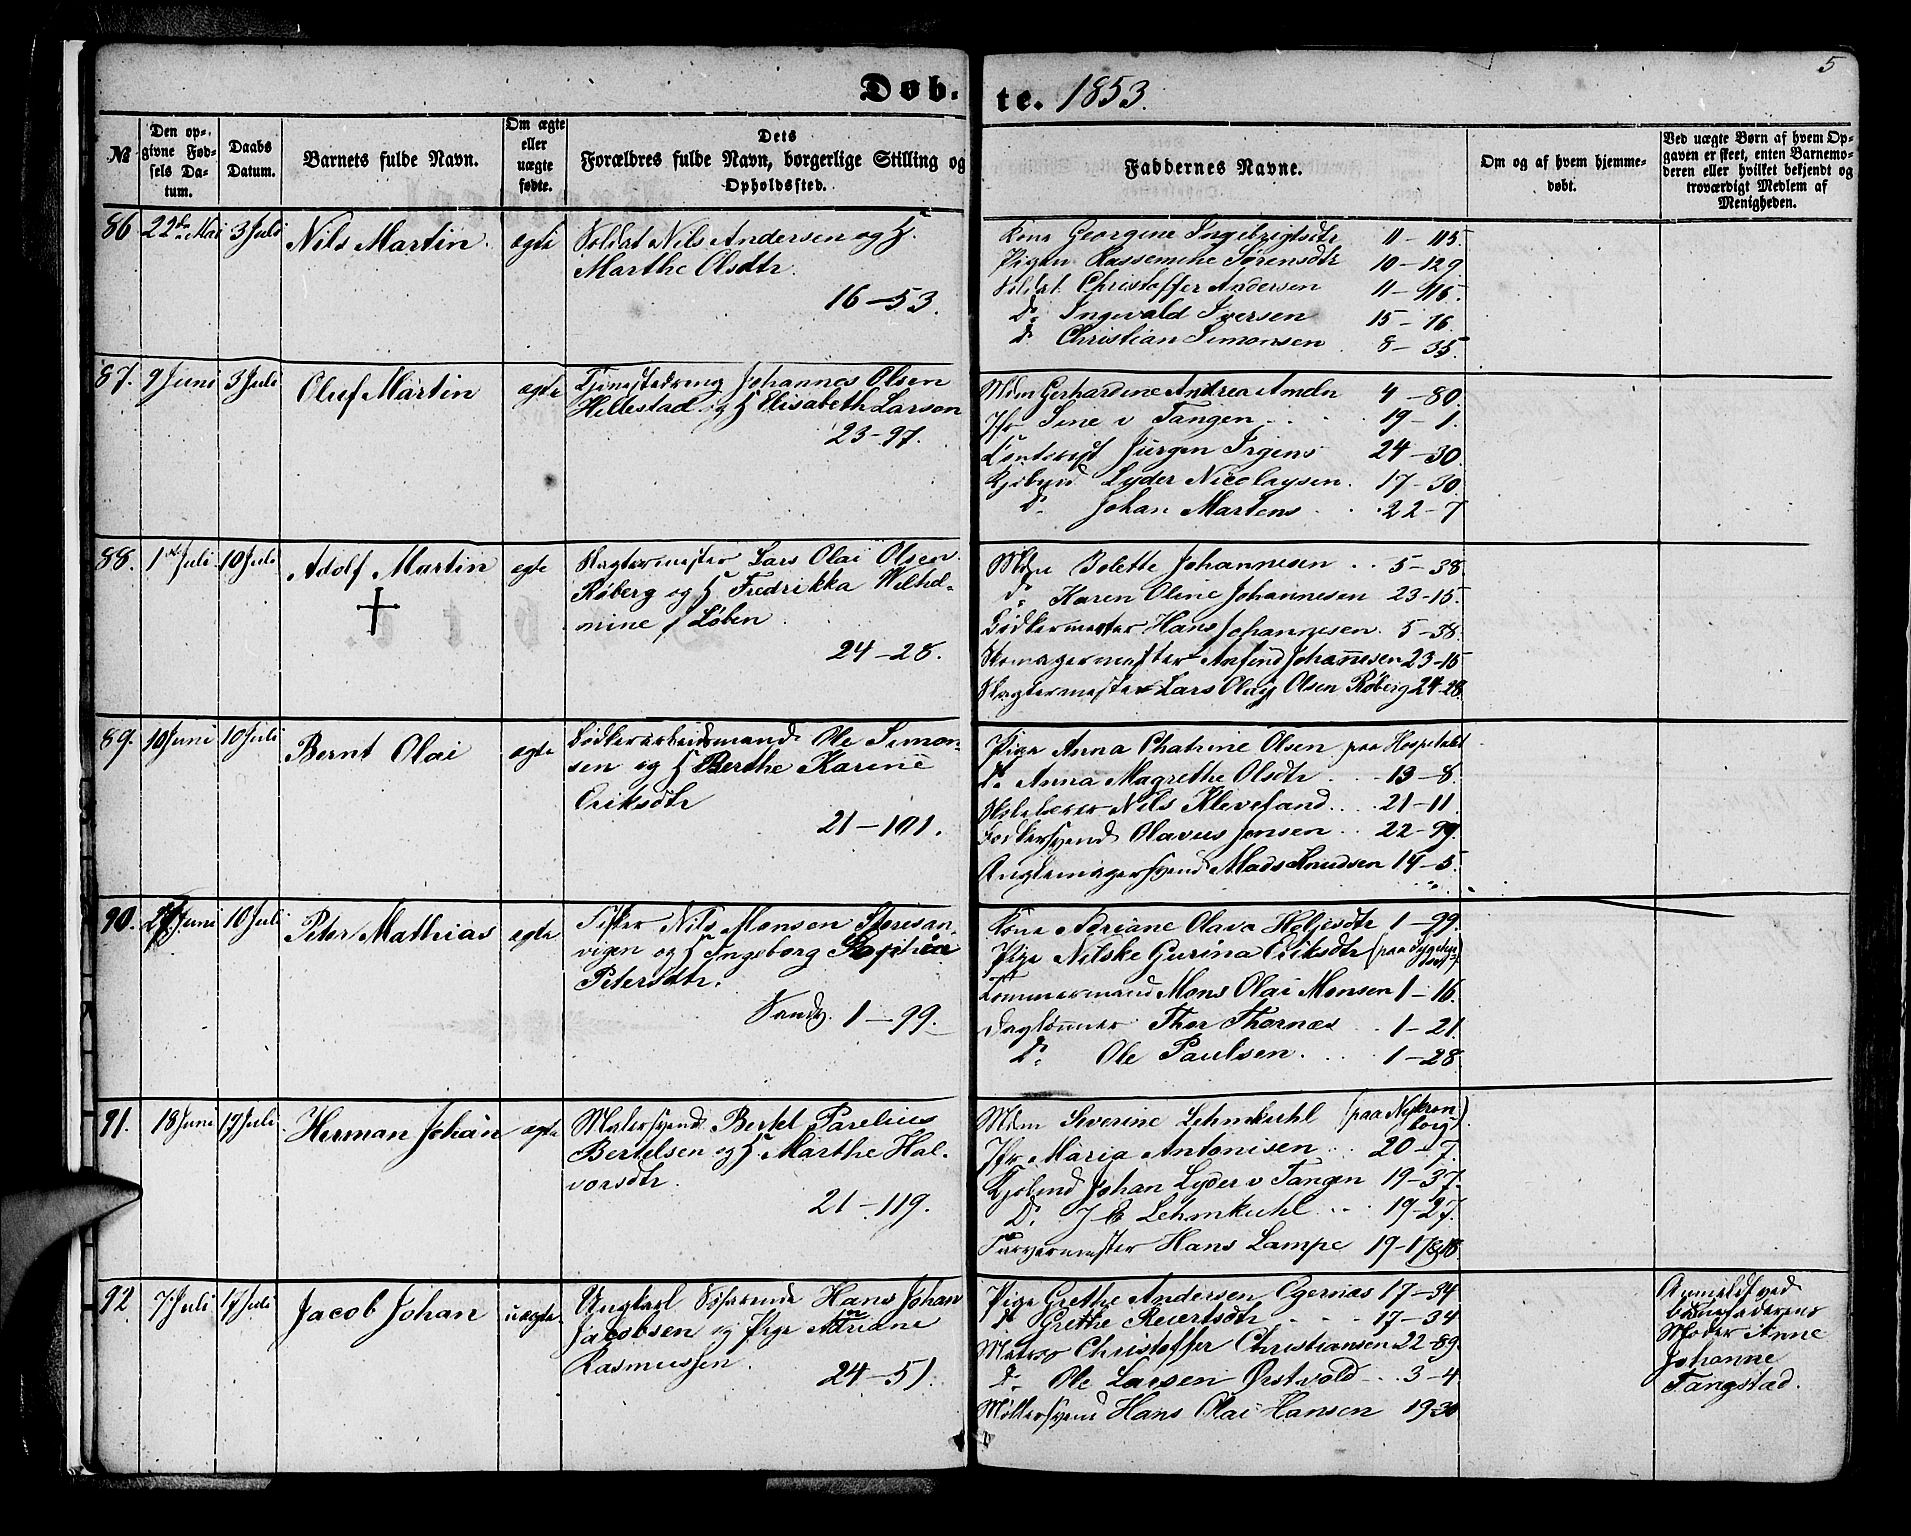 Døb-
te. 1853.
5
№
Den op-
givne Fød-
sels Da-
tum.
Daabs
Datum.
Barnets fulde Navn.
Om ægte
eller
uægte
fødte.
Dets
Forældres fulde Navn, borgerlige Stilling og
Opholdssted.
Faddernes Navne.
Om og af hvem hjemme-
døbt.
Ved uægte Børn af hvem Op-
gaven er skeet, enten Barnemo-
deren eller hvilket bekjendt og
troværdigt Medlem af
Menigheden.
86 22de Mai 3 Juli Nils Martin. ægte Soldat Nils Andersen og H.
Marthe Olsdtr.
16-53.
Kone Georgine Ingebrigtsdtr 11-115.
Pigen Rassemine Sørensdtr 10-129
Soldat Christoffer Andersen 11-116.
Do Ingevald Iversen 15-76.
do Christian Simonsen 8-35.
87. 9 Juni 3 Juli Oluf Martin ægte Johannes Olsen
Hillestad og H Elisabeth Larsen
23-97.
Mdm Gerhardine Andrea Amdn 4-80
Jfr Sine v Tangen 19-1.
Contorist Jürgen Irgens 24-30
Kjøbmd Lyder Nicolaysen. 17-30
Do Johan Martens 22-7
88. 1 Juli 10 Juli Adolf Martin ægte Slagtermester Lars Olai Olsen
Røberg og H Fredrikka Wilhel-
mine f Løben
24-28.
Mdm Bolette Johannesen 5-38.
Do Karen Oline Johannesen 23-15.
Bødkermester Hans Johannesen. 5-38.
Skomagermester Anfind Johannesen 23-15
Slagtermester Lars Olay Olsen Røberg 24-28
89. 10 Juni 10 Juli Bernt Olai ægte Bødkerarbeidsmand Ole Simon-
sen og H Berthe Karine
Eriksdtr
21-101.
Pige Anna Chatrine Olsen paa Hospitalet
Do Anna Magrethe Olsdtr 13-8.
Skolelærer Nils Klevesand 21-11.
Bødkersvend Olavus Jensen 22-99.
Mads Knudsen 14-5
90. 27 Juni 10 Juli Peter Mathias ægte Fisker Nils Monsen Storesan-
vigen og H Ingeborg Sophia
Petersdtr.
Sandv. 1-99.
Kone Adriane Olava Heljesdtr 1-99.
Pige Nilske Gurina Eriksdtr (paa
Tømmermand Mons Olai Monsen 1-16
Daglønner Thor Thornæs 1-21
Do Ole Paulsen. 1-28
91. 18 Juni 17 Juli Herman Johan ægte Malersvend Bertel Parelius
Bertelsen og H Marthe Hal-
vorsdtr.
21-119.
Mdm Severine Lehmkuhl (paa Nykron-
borg)
Jfr Maria Antonisen 20-7.
Kjøbmd Johan Lyder v Tangen 19-37.
Do J E Lehmkuhl 19-27.
Farvermester Hans Lampe 19-17&18
92 7 Juli 17 Juli Jacob Johan uægte Ungkarl Søfarende Hans Johan
Jacobsen og Pige Mariane
Rasmussen.
24-51.
Pige Grethe Andersen Egernæs 17-34
Do Grethe Reiertsdtr 17-34
Matros Christoffer Christiansen 22-89.
do Ole Larsen Ørstvold 3-4
Møllersvend Hans Olai Hansen 19-30
Anmeldt ved
Barnefaderens
Moder Anne
Johanne
Tangstad.